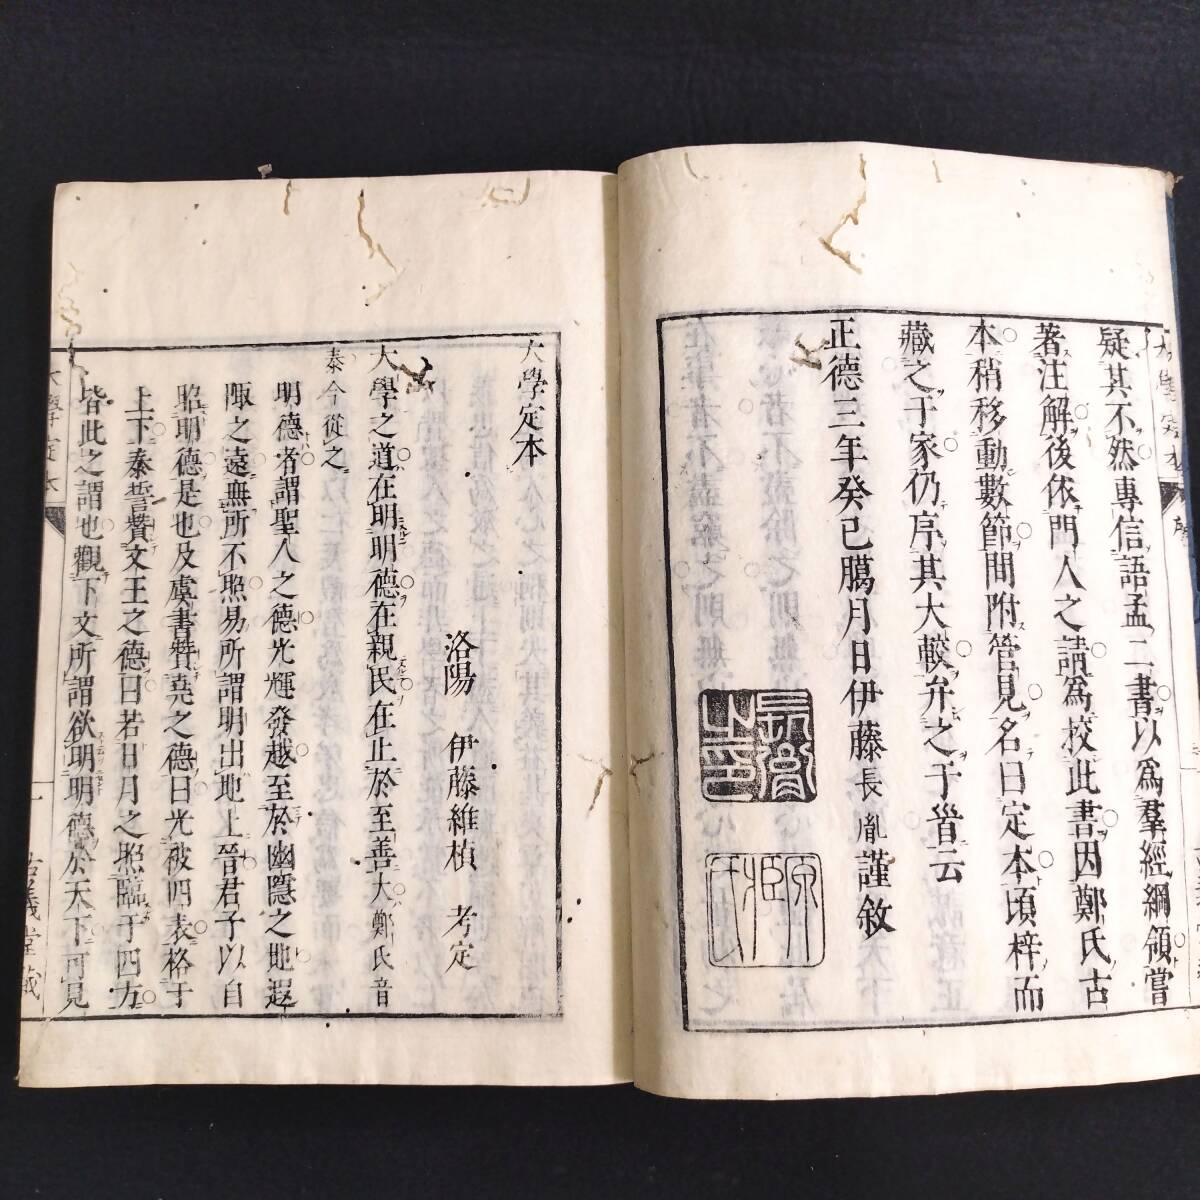 疑其不然專信語孟二書以爲羣經綱領嘗
著注解後依門人之請爲挍此書因鄭氏古
本稍移動數節間附管見名曰定本頃梓而
藏之于家仍序其大較弁之于簮云
正德三年癸巳臈月日伊藤長胤謹敘
大學定本
洛陽 伊藤維楨 考定
大學之道在明明德在親民在止於至善大鄭氏音
泰今從之
明德者謂聖人之德光輝發越至於幽隱之地遐
陬之遠無所不照易所謂明出地上晉君子以自
昭明德是也及虞書贊堯之德曰光被四表格于
上下泰誓贊文王之德曰若日月之照臨于四方
皆此之謂也觀下文所謂欲明明德於天下可見
一
古義堂藏